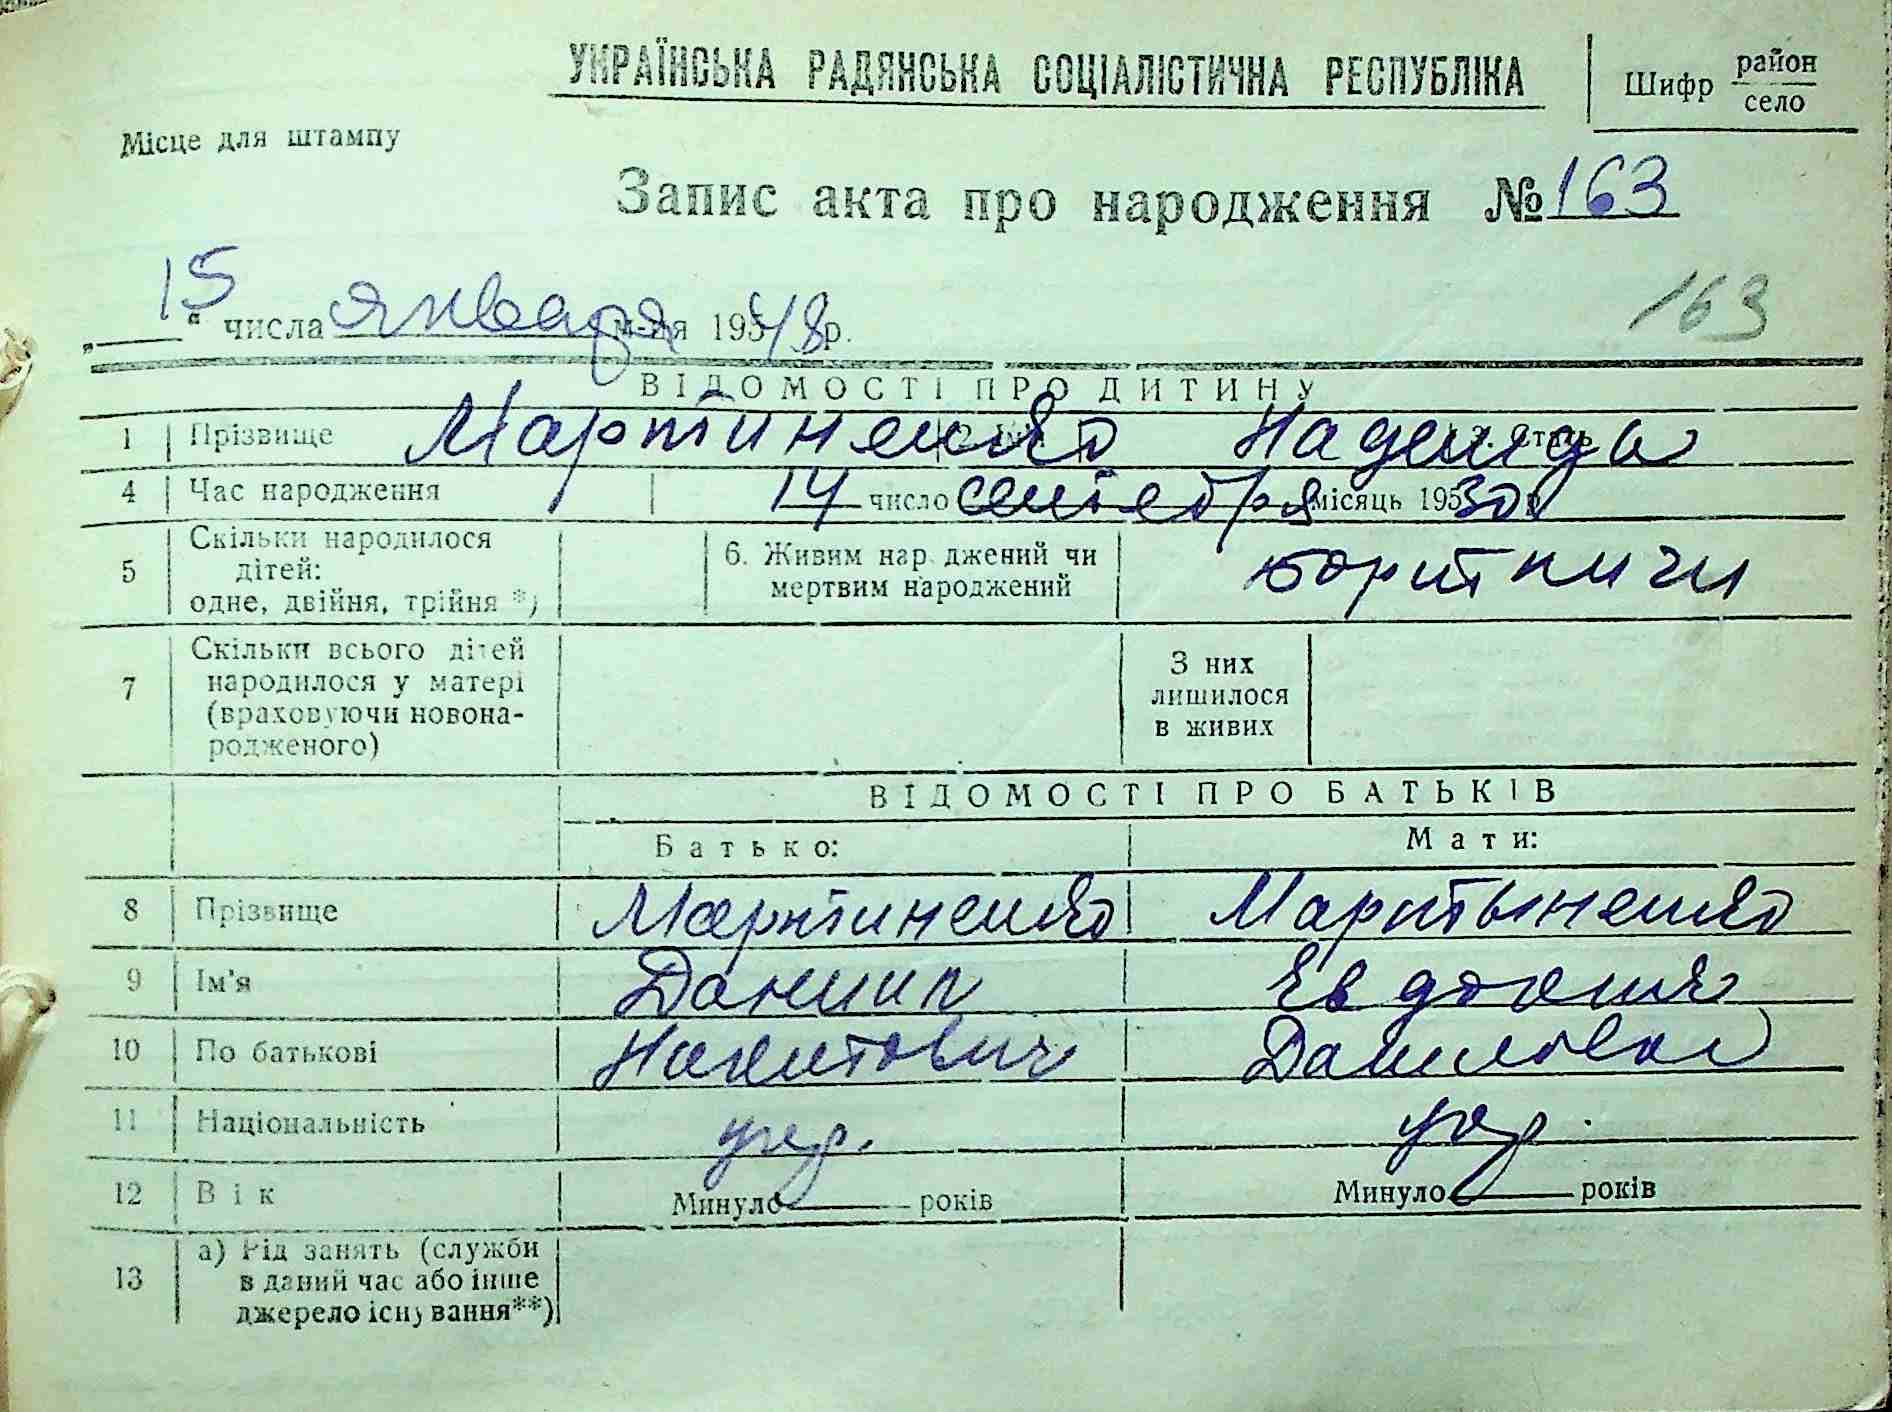 УКРАЇНСЬКА РАДЯНСЬКА СОЦІАЛІСТИЧНА РЕСПУБЛІКА
Шифр район
село
Місце для штампу
Запис акта про народження № 163
„ 15 “ числа января м-ця 195 48 р.
163
ВІДОМОСТІ ПРО ДИТИНУ
1 Прізвище Мартиненко Надежда
4 Час народження 14 число сентебря місяць 195 30 р
5 Скільки народилося дітей: одне, двійня, трійня *)
6. Живим народжений чи мертвим народжений
7 Скільки всього дітей народилося у матері (враховуючи новонародженого)
З них лишилося в живих
ВІДОМОСТІ ПРО БАТЬКІВ
Батько: Мати:
8 Прізвище Мартиненко Мартыненко
9 Ім'я Даниил Евдокия
10 По батькові Никитович Даниловна
11 Національність укр. укр.
12 Вік Минуло років Минуло років
13 а) Рід занять (служби в даний час або інше джерело існування**)